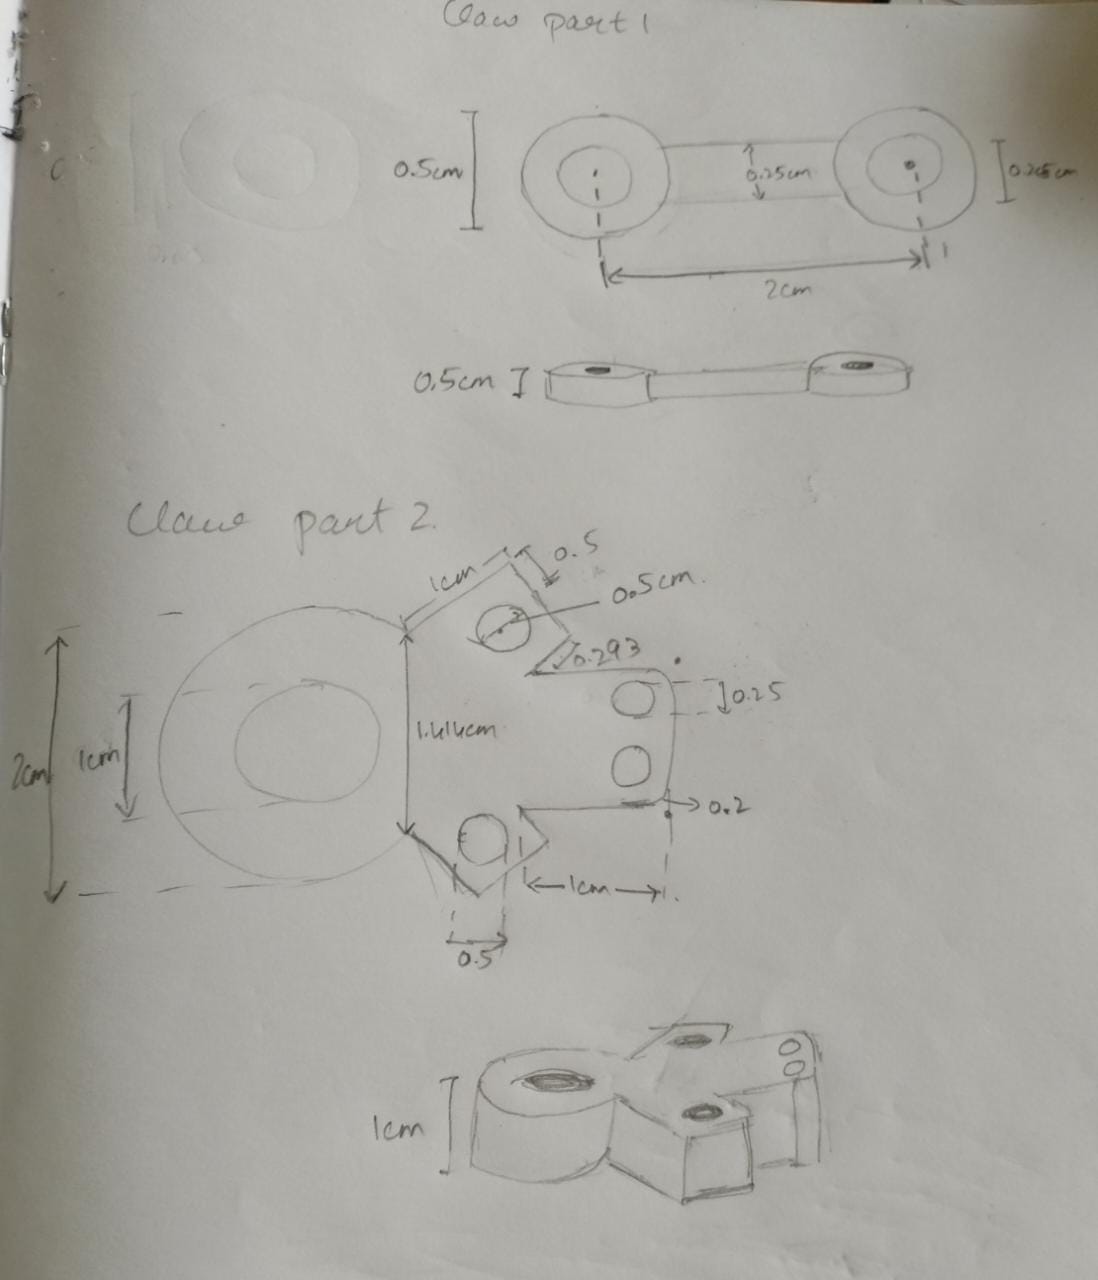 Claw part 1
0.5cm
0.25cm
0.25cm
2cm
0.5cm
Claw part 2.
1cm
0.5
0.5cm.
0.293
0.25
1.414cm
2cm
1cm
0.2
1cm
0.5
1cm